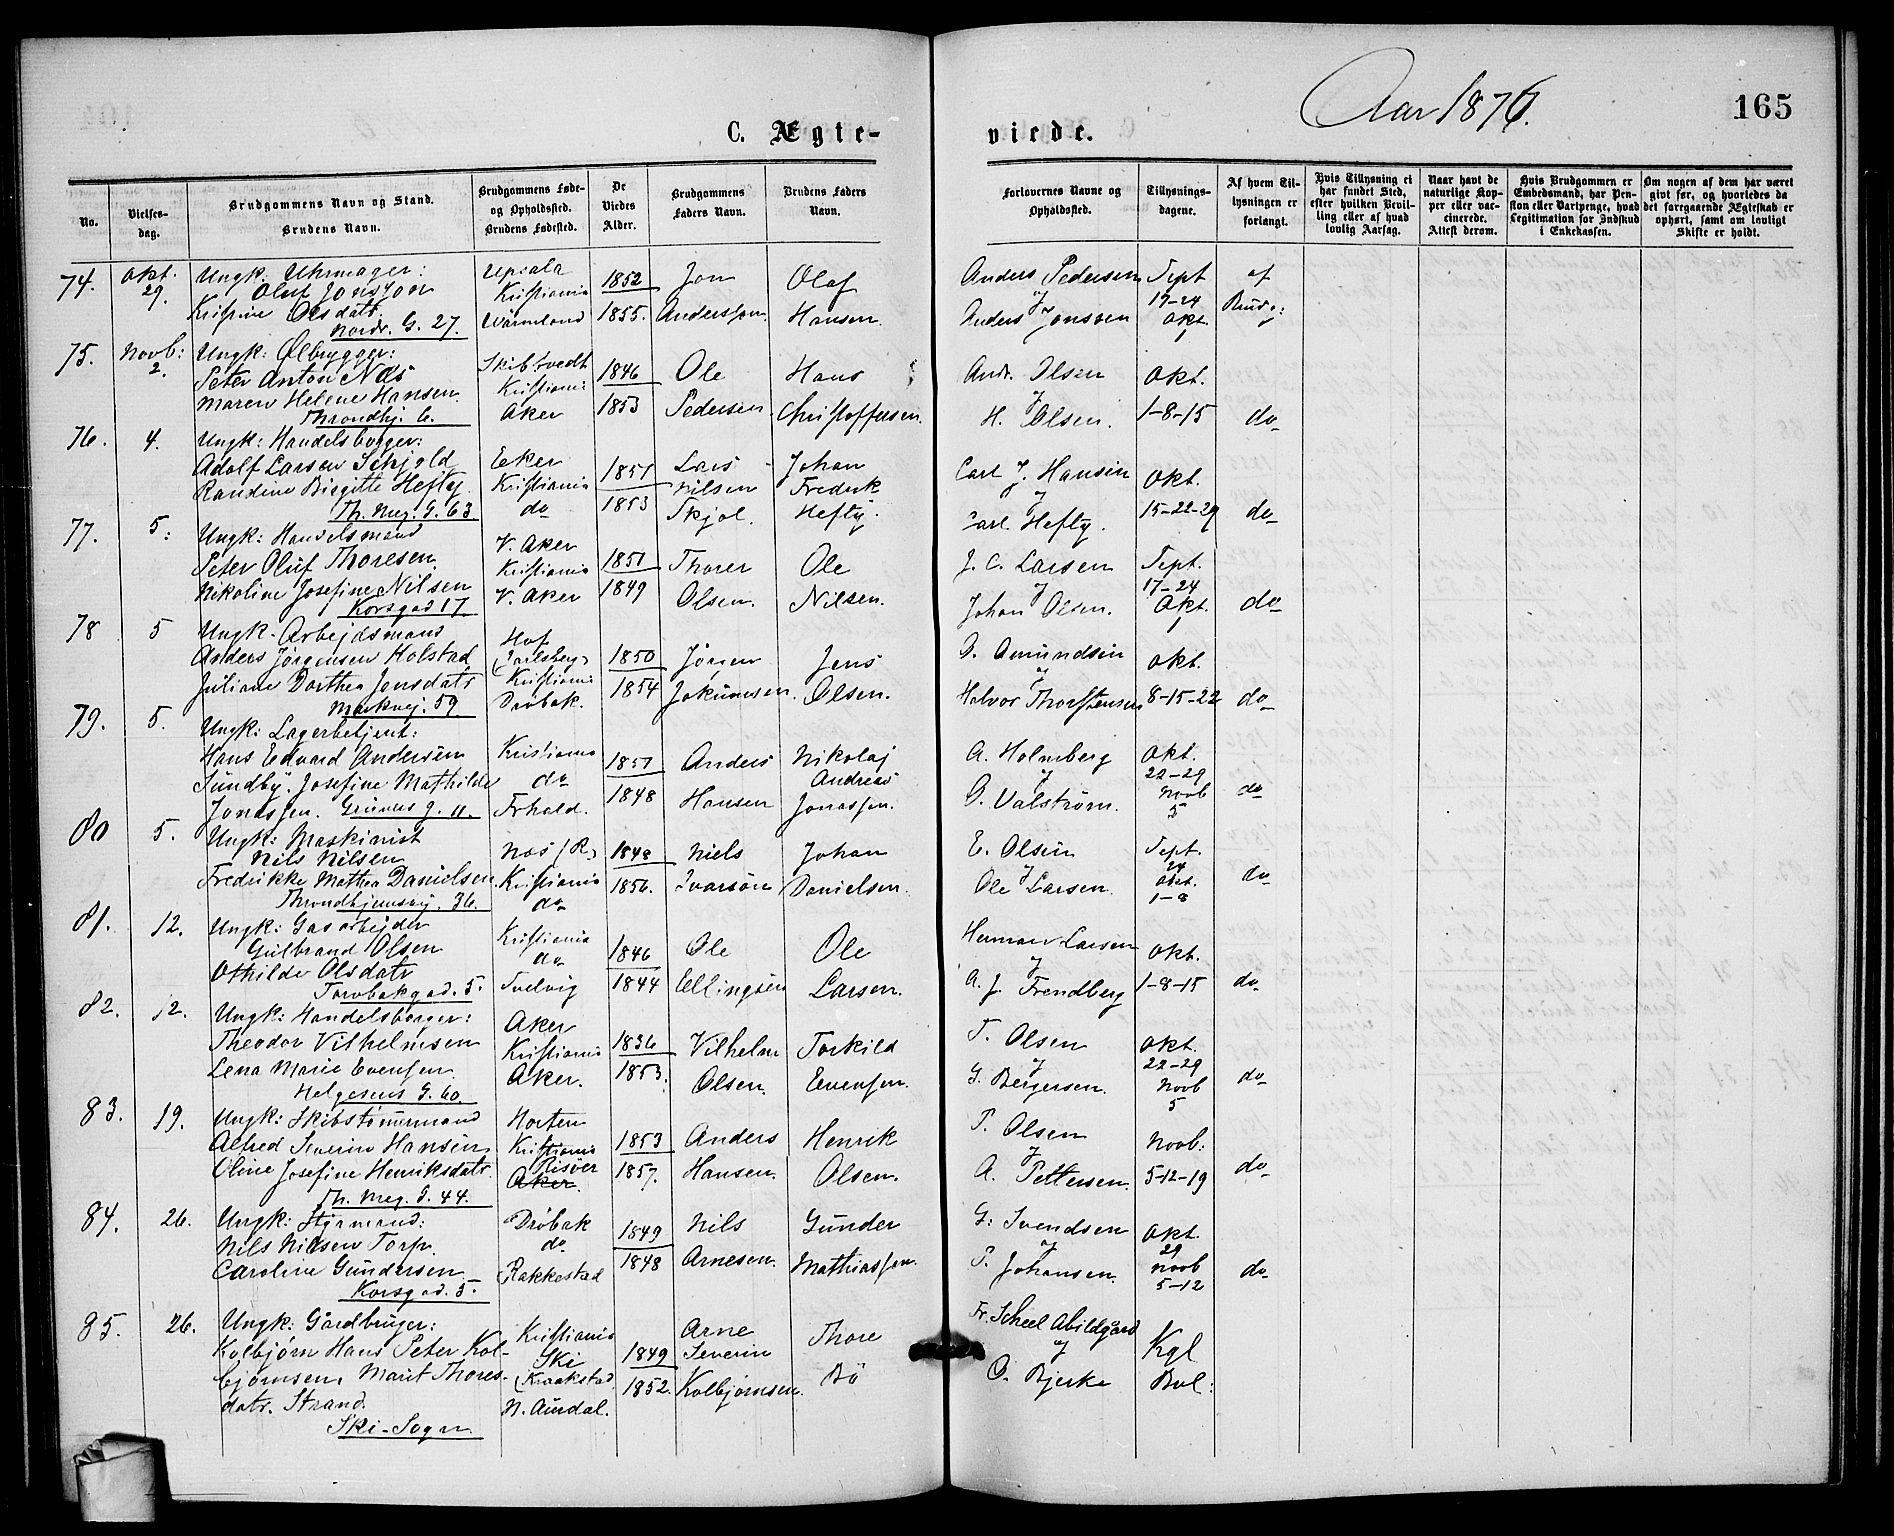 Aar 1876.
165
C. Ægte-
viede.
No.
Vielses-
dag.
Brudgommens Navn og Stand.
Brudens Navn.
Brudgommens Føde-
og Opholdssted.
Brudens Fødested.
De
Viedes
Alder.
Brudgommens
Faders Navn.
Brudens Faders
Navn.
Forlovernes Navne og
Opholdssted.
Tillysnings-
dagene.
Af hvem Til-
lysningen er
forlangt.
Hvis Tillysning ei
har fundet Sted,
efter hvilken Bevil-
ling eller af hvad
lovlig Aarsag.
Naar havt de
naturlige Kop-
per eller vac-
cinerede.
Attest derom.
Hvis Brudgommen er
Embedsmand, har Pen-
sion eller Vartpenge, hvad
Legitimation for Indskud
i Enkekassen.
Om nogen af dem har været
gift før, og hvorledes da
det foregaaende Ægteskab er
ophørt, samt om lovligt
Skifte er holdt.
74. Okt. 29. Ungk: Uhrmager: Upsala 1852 Jon Olaf Anders Pedersen Sept af
Oluf Jonsson Kristiania & 17-24 Brudg:
Kristine Olsdatr Wärmland 1855. Anderssøn. Hansen. Anders Jonsven Okt 1
Nordr. G. 27.
75. Novb: 2. Ungk: Ølbrygger: Skibtvedt 1846 Ole Hans Andr. Olsen Okt.
Peter Anton Næs Kristiania &
Maren Helene Hansen Aker 1853 Pedersen Christoffersen. H. Olsen. 1-8-15 do
Throndhj. 6.
76. 4. Ungk: Handelsborger:
Adolf Larsen Schjold Eker 1851 Lars Johan Carl J. Hansen Okt.
Randine Birgitte Hefty Kristiania Nilsen Fredrik &
Th. Mey. G. 63. do 1853 Skjol. Hefty. Carl Hefty. 15-22-29 do
77. 5. Ungk: Handelsmand V. Aker
Peter Oluf Thoresen Kristiania 1851 Thorer Ole J. C. Larsen Sept.
Nikoline Josefine Nilsen V. Aker 1849 Olsen. Nilsen. & 17-24
Korsgad 17 Johan Olsen. Okt. 1 do
78 5 Ungk. Arbejdsmand Hof
Anders Jørgensen Holstad (Jarlsberg) 1850 Jørgen Jens O. Amundsen Okt.
Juliane Dorthea Jensdatr Kristiania &
Markvej. 59. Drøbak. 1854 Jokumsen. Olsen. Halvor Thorstensen 8-15-22 do
79. 5. Ungk: Lagerbetjent:
Hans Edvard Andersen Kristiania 1851 Anders Nikolaj A. Holmberg Okt.
Sundby. Josefine Mathilde do Andreas & 22-29
Jonassen. Grüners g. 11. Frhald. 1848 Hansen Jonassen. O. Valstrøm. Novb 5 do
80 5. Ungk: Maskinist
Nils Nilsen Næs (R.) 1848 Niels Johan E. Olsen Sept.
Fredrikke Mathea Danielsen Kristiania & 24
Throndhjemsvej. 36. do 1850. Ivarsøn Danielsen. Ole Larsen. Okt. 1-8 do
81. 12. Ungk: Gasarbejder
Gulbrand Olsen Kristiania do 1846 Ole Ole Herman Larsen Okt.
Othilde Olsdatr &
Torvbakgad. 5. Svelvig 1844 Ellingsen Larsen. A. J. Frendberg 1-8-15 do
82. 12. Ungk: Handelsborger: Aker
Theodor Vilhelmsen Kristiania 1836 Vilhelm Torkild T. Olsen Okt.
Lena Marie Evensen Aker. 1853. Olsen. Evensen. & 22-29
Helgesens G. 60. G. Bergersen. Novb 5 do
83. 19. Ungk: Skibstømmermand Horten
Alfred Severin Hansen Kristiania 1853 Anders Henrik P. Olsen Novb:
Oline Josefine Henriksdatr. Risøer Aker. 1857. Hansen. Olsen. &
Th. Mey. G. 44. A. Pettersen. 5-12-19 do
84. 26. Ungk: Styrmand: Drøbak 1849 Nils Gunder G: Svendsen Okt.
Nils Nilsen Torp. do & 29
Caroline Gundersen Rakkestad 1848 Arnesen. Mathiassen. P. Johansen. Novb 5-12 do
Korsgad. 5.
85. 26. Ungk: Gårdbruger: Kristiania Arne Thore Fr. Scheel Abildgård
Kolbjørn Hans Peter Kol- Ski 1849 Severin & Kgl
bjørnsen. Marit Thores- (Kraakstad 1852. Kolbjørnsen. Bö O. Bjerke Bvl:
datr. Strand. N. Aurdal.
Ski-Sogn.